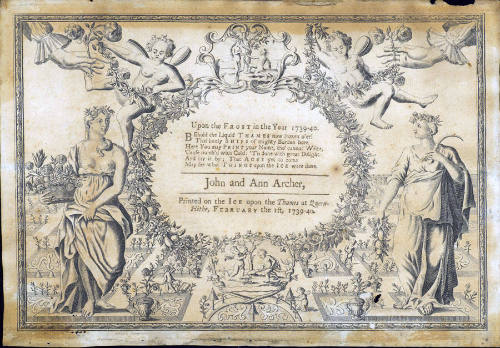 Upon the FROST in the Year 1739-40.
BEhold the Liquid THAMES now frozen o'er!
That lately SHIPS of mighty Burden bore.
Here You may PRINT your Name, tho' cannot Write,
'Cause numb'd with Cold: 'Tis done with great Delight.
And lay it by; That AGES yet to come
May see what THINGS upon the ICE were done.
John and Ann Archer,
Printed on the ICE upon the Thames at Queen-
Hithe, FEBRUARY the 1st, 1739-40.